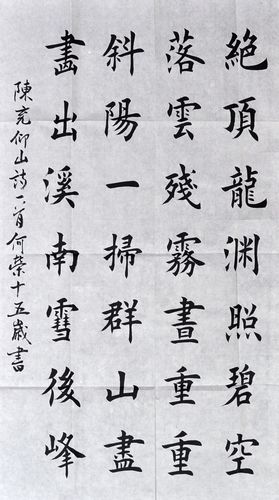 絕頂龍渊照碧空
落雲殘霧晝重重
斜陽一掃群山盡
畵出溪南雪後峰
陳堯仰山詩一首何榮十五歲書